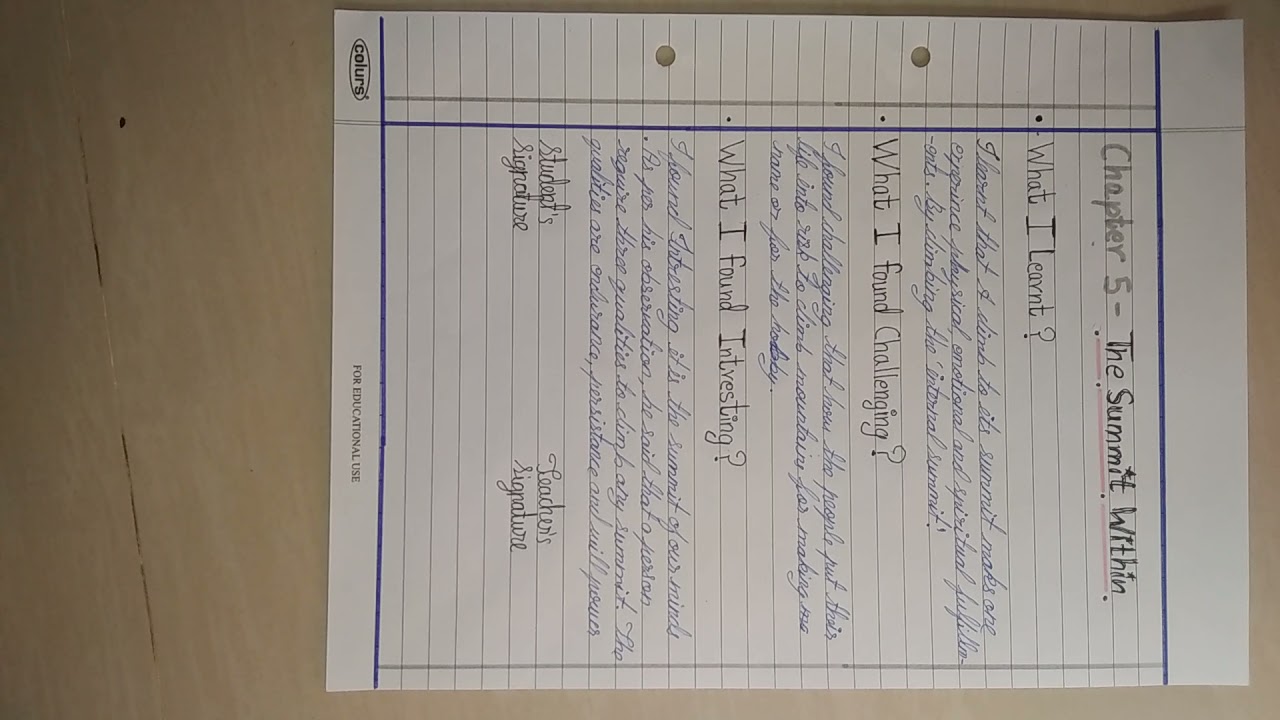 Chapter 5 - The Summit Within
• What I Learnt?
I learnt that & climb to its summit makes one
experince physical, emotional and spiritual fulfillm-
-ents. By climbing the 'internal summit'.
• What I found Challenging?
I found challenging that how the people put their
life into risk to climb mountains for making
name or for the hobby.
• What I found Intresting?
I found Intresting it is the summit of our minds
. As per his observation, he said that a person
require three qualities to climb any summit. The
qualities are endurance, persistance and will power
Student's Teacher's
Signature Signature
colurs
FOR EDUCATIONAL USE